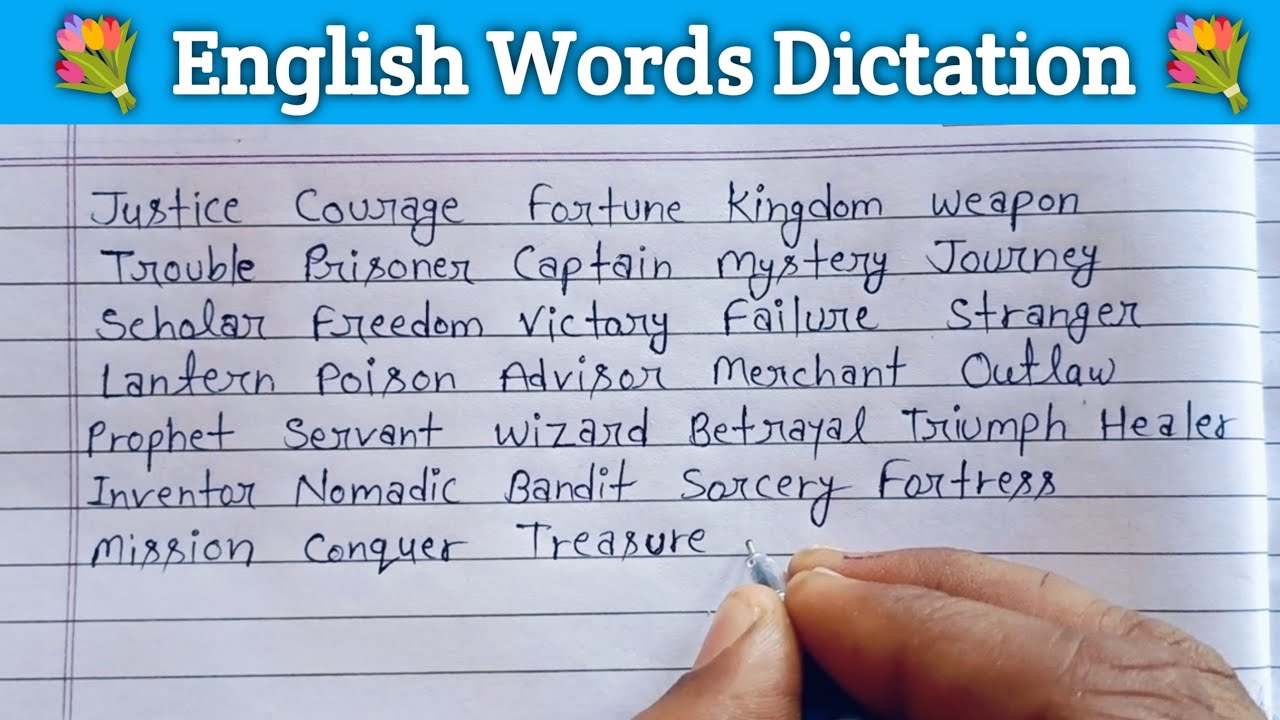 English Words Dictation
Justice Courage Fortune Kingdom Weapon
Trouble Prisoner Captain Mystery Journey
Scholar Freedom Victory Failure Stranger
Lantern Poison Advisor Merchant Outlaw
Prophet Servant Wizard Betrayal Triumph Healer
Inventor Nomadic Bandit Sorcery Fortress
Mission Conquer Treasure